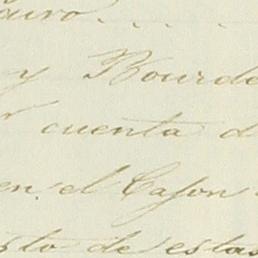 y Bourde
cuenta d
en el Cajon
sto de estas